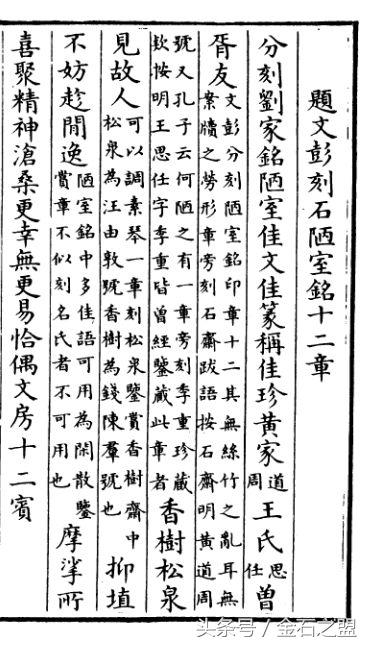 題文彭刻石陋室銘十二章
分刻劉家銘陋室佳文佳篆稱佳珍黃家道周王氏思任曾
胥友文彭分刻陋室銘印章十二其無絲竹之亂耳無
案牘之勞形章旁刻石齋跋語按石齋明黃道周
號又孔子云何陋之有一章旁刻季重珍藏
欵按明王思任字季重皆曾經鑒藏此章者香樹松泉
見故人可以調素琴一章刻松泉鑒賞香樹齋中
松泉為汪由敦號香樹為錢陳羣號也抑埴
不妨趁閒逸陋室銘中多佳語可用為閑散鑒
賞章不似刻名氏者不可用也摩挲所
喜聚精神滄桑更幸無更易恰偶文房十二賓
头条号／金石之盟